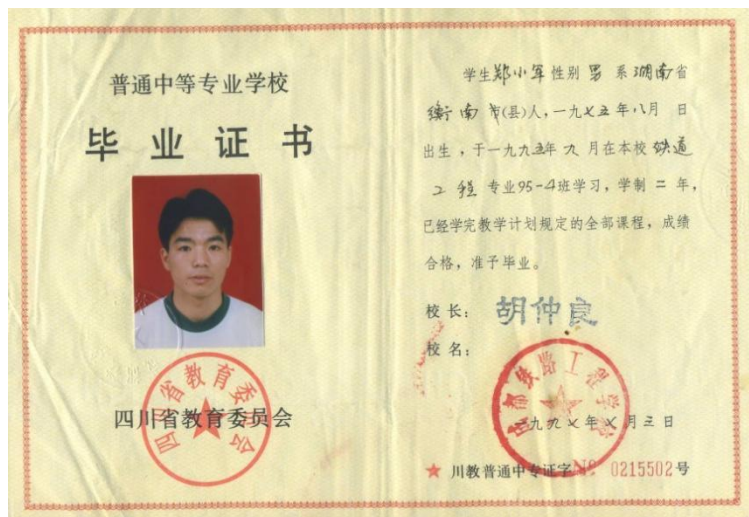 普通中等专业学校
毕业证书
四川省教育委员会
四川省教育委员会
学生郑小军性别 男 系 湖南省
衡南 市(县)人，一九七五年八月 日
出生，于一九九五年九月在本校铁道
工程 专业95-4班学习，学制 二 年，
已经学完教学计划规定的全部课程，成绩
合格，准予毕业。
校长： 胡仲良
校名：
成都铁路工程学校
一九九七年七月三日
★ 川教普通中专证字№ 0215502号